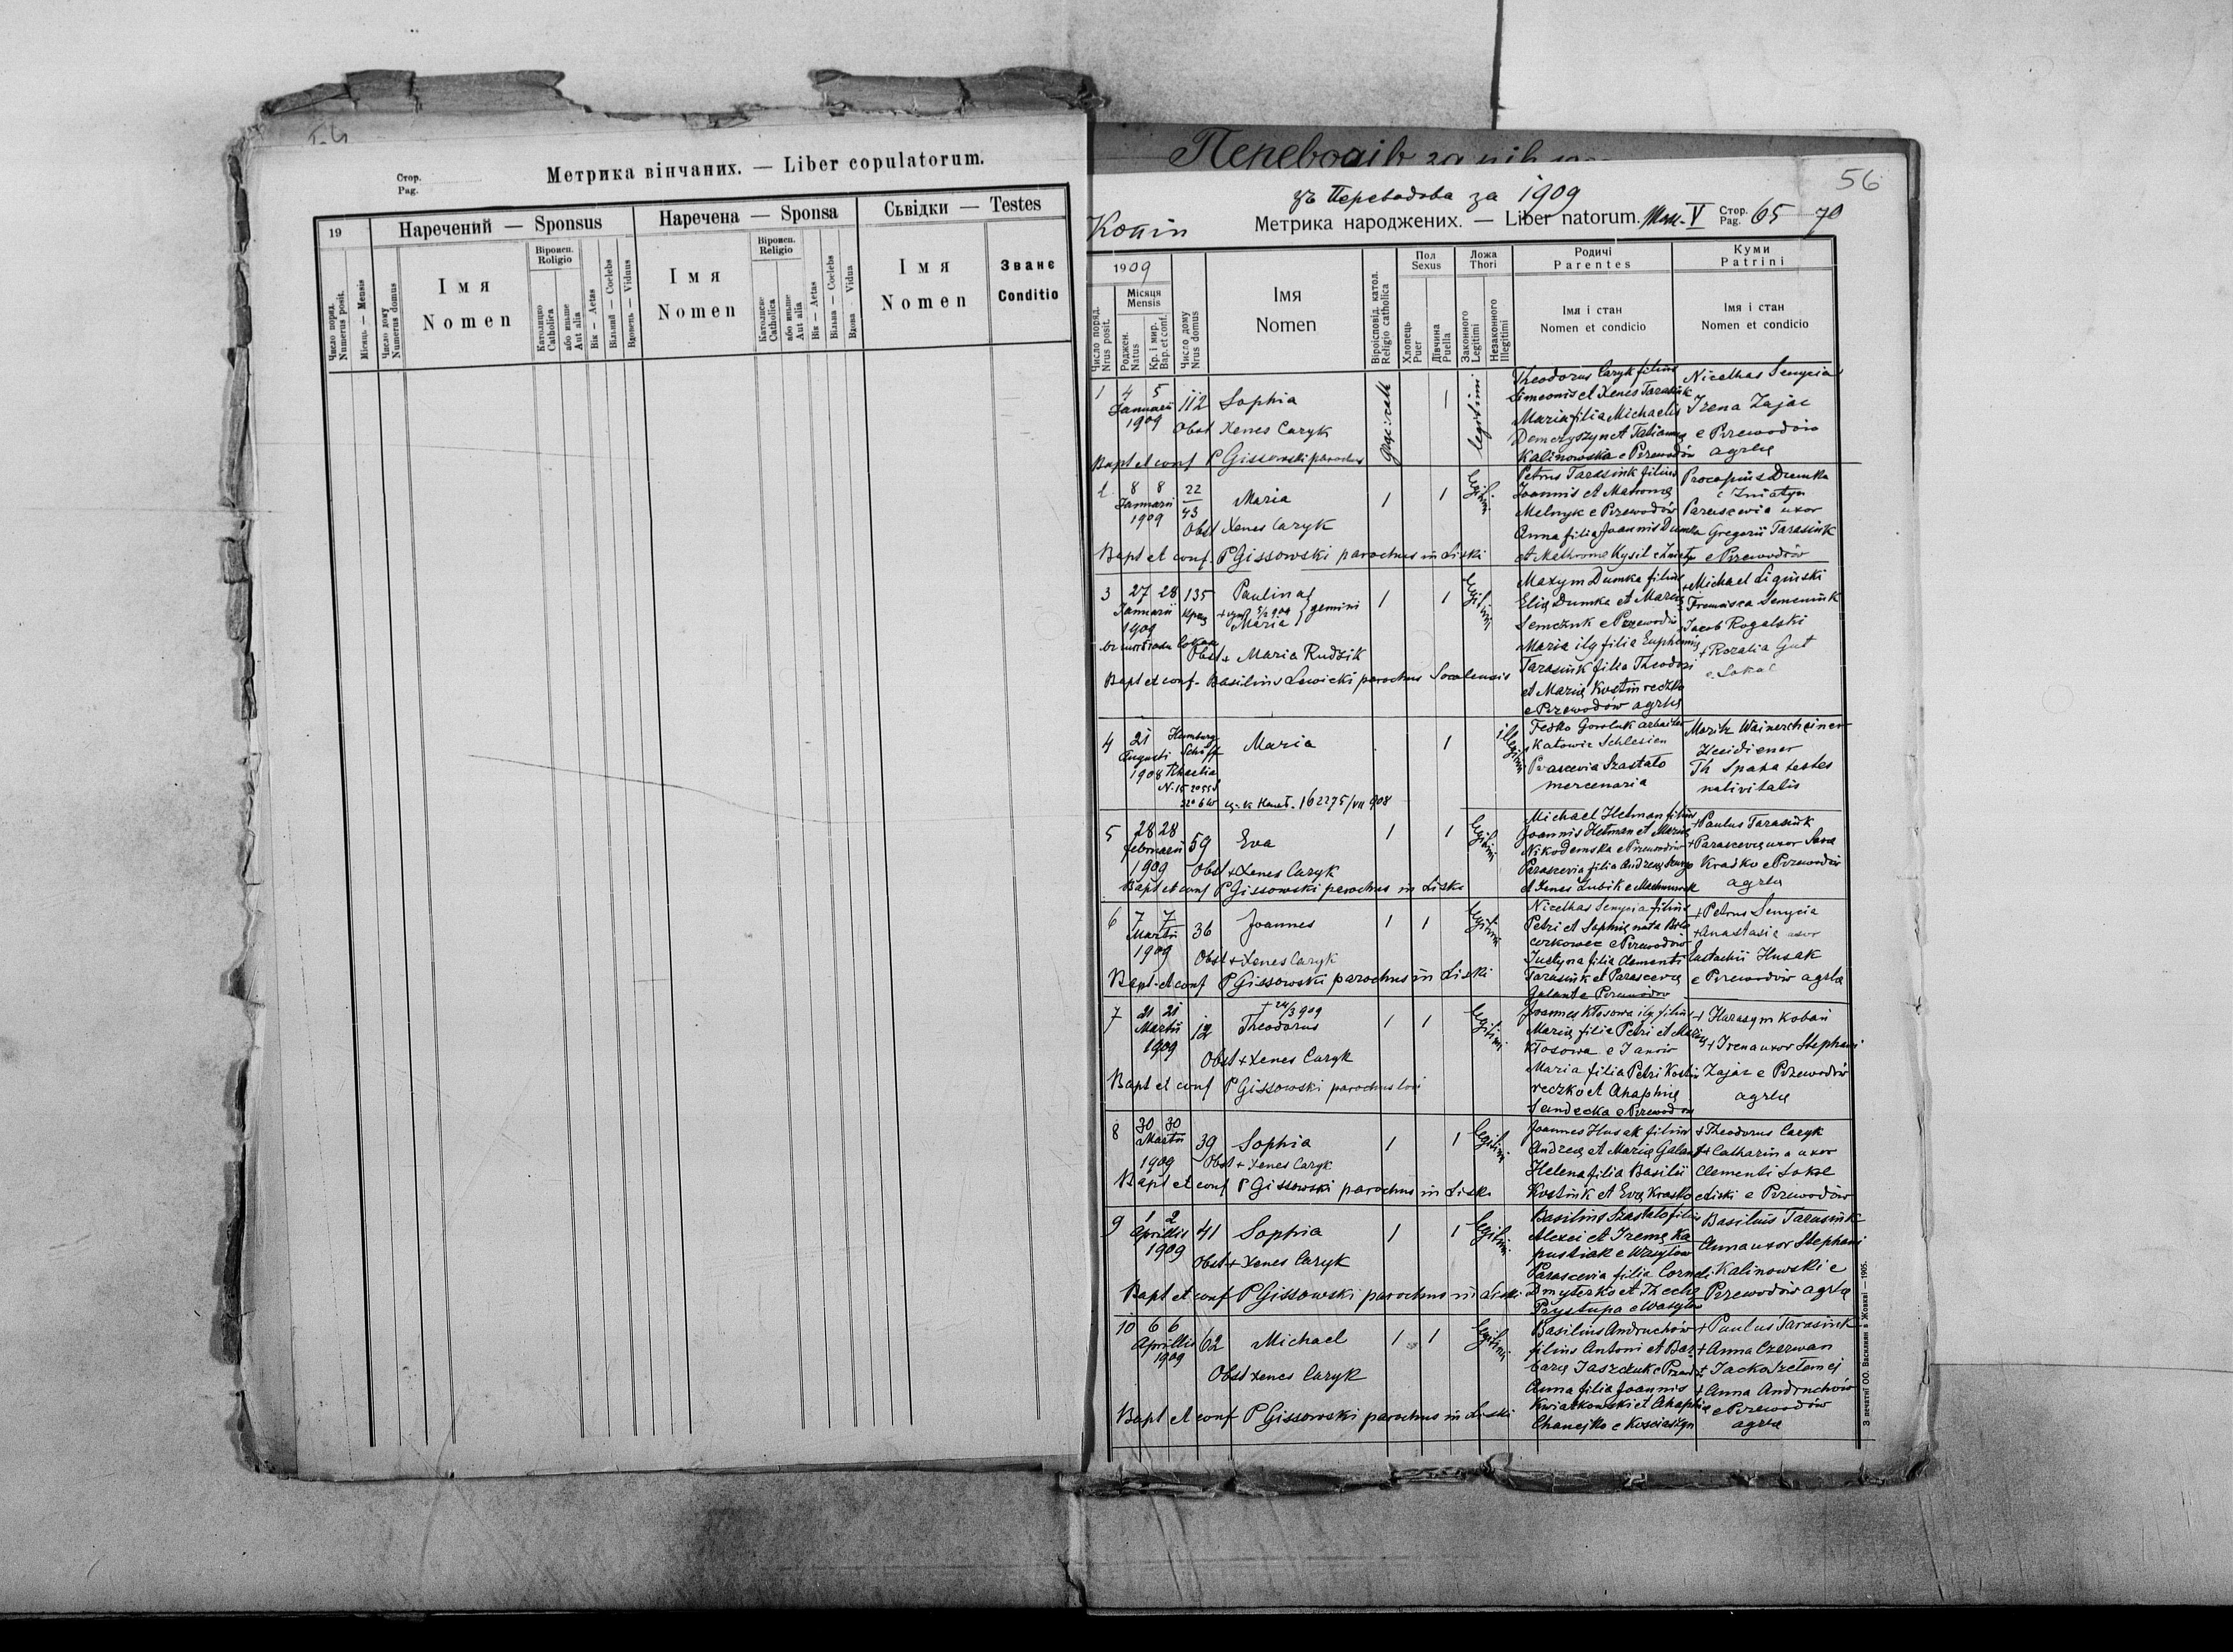 Стор.
Pag.
Метрика вінчаних. — Liber copulatorum.
19
Наречений — Sponsus
Наречена — Sponsa
Сьвідки — Testes
Число поряд.
Numerus posit.
Місяць — Mensis
Число дому
Numerus domus
Імя
Nomen
Віроисп.
Religio
Католицко
Catholica
або иньше
Aut alia
Вік — Aetas
Вільний — Coelebs
Вдовець — Viduus
Імя
Nomen
Віроисп.
Religio
Католиске
Catholica
або иньше
Aut alia
Вік — Aetas
Вільна — Coelebs
Вдова — Vidua
Імя
Nomen
Званє
Conditio
56
зъ Переводова за 1909
Копія
Метрика народжених. — Liber natorum. V Стор. Pag. 65 70
1909
Число поряд.
Nrus posit.
Місяця
Mensis
Роджен.
Natus
Кр. і мир.
Bap. et conf.
Число дому
Nrus domus
Імя
Nomen
Віроісповід. катол.
Religio catholica
Пол
Sexus
Хлопець
Puer
Дівчина
Puella
Ложа
Thori
Законного
Legitimi
Незаконного
Illegitimi
Родичі
Parentes
Імя і стан
Nomen et condicio
Куми
Patrini
Імя і стан
Nomen et condicio
1 4 5 Januarii 1909 112 Sophia 1 legitimi
Obst Xenes Caryk
Bapt et conf P Gissowski parochus
Theodorus Caryk filius
Simeonis et Xenes Tarasiuk
Maria filia Michaelis
Demczyszyn et Tatianna
Kalinowska e Przewodów
Nicethas Senycia
Irena Zajac
e Przewodów
agrlae
8 8 Januarii 1909 22 43 Maria 1 1 legitimi
Obst Xenes Caryk
Bapt et conf. P Gissowski parochus in Liski
Petrus Tarasiuk filius
Joannis et Matronae
Melnyk e Przewodów
Anna filia Joannis Dumka
et Mathrona Kysil e Zniatyn
Procopius Dumka
e Zniatyn
Parascevia uxor
Gregorii Tarasiuk
e Przewodów
3 27 28 Januarii 1909 135 Paulina
Maria gemini 1 1 legitimi
Obst + Maria Rudzik
Bapt et conf. Basilius Lewicki parochus Socalensis
Maxym Dumka filius
Eliae Dumka et Mariae
Semczuk e Przewodów
Maria ilg filia Euphemiae
Tarasiuk filia Theodosi
et Mariae Kostiureczko
e Przewodów agrlae
Michael Ligiński
Francisca Semeniuk
Jacob Rogalski
+ Rozalia Gut
e Sokal
4 21 Augusti 1908 Hamburg Schiff Rhaetia Maria 1 illegitimi
162275/VII 908
Fedko Goroluk arbeiter
Katowic Schlesien
Parascevia Szastało
mercenaria
Moritz Wainerscheiner
Heidiener
Th Spaha testes
nativitatis
5 28 28 februarii 1909 59 Eva 1 1 legitimi
Obst + Xenes Caryk
Bapt et conf P Gissowski parochus in Liski
Michael Hetman filius
Joannis Hetman et Mariae
Nikodemska e Przewodów
Parascevia filia Andreae
et Xenes Zubik e Machnowek
+ Paulus Tarasiuk
+ Parascevia uxor Sava
Krasko e Przewodów
agrlae
6 7 7 Martii 1909 36 Joannes 1 1 legitimi
Obst + Xenes Caryk
Bapt et conf P Gissowski parochus in Liski
Nicethas Senycia filius
Petri et Sophiae nata Bilo
cerkowec e Przewodów
Justyna filia Clementi
Tarasiuk et Parasceviae
Galant e Przewodów
+ Petrus Senycia
+ Anastasia uxor
Eustachii Husak
e Przewodów agrlae
7 21 21 Martii 1909 12 + 24/3 909
Theodorus 1 1 legitimi
Obst + Xenes Caryk
Bapt et conf P Gissowski parochus loci
Joannes Kłosowa ilg filius
Mariae filia Petri et
Kłosowa e Janów
Maria filia Petri Kostiu
reczko et Ahaphiae
Sendecka e Przewodów
+ Harasym Koban
+ Irena uxor Stephani
Zajac e Przewodów
agrlae
8 30 30 Martii 1909 39 Sophia 1 1 legitimi
Obst + Xenes Caryk
Bapt et conf P Gissowski parochus in Liski
Joannes Husak filius
Andreae et Mariae Galant
Helena filia Basilii
Kostiuk et Evae Krasko e Liski
+ Theodorus Caryk
+ Catharina uxor
Clementi Sokal
e Przewodów
9 1 2 Aprilis 1909 41 Sophia 1 1 legitimi
Obst + Xenes Caryk
Bapt et conf P Gissowski parochus in Liski
Basilius Szastało filius
Alexei et Irenae Ka
pustiak e Wasylow
Parascevia filia Corneli
Dmyterko et Theclae
Prystupa e Wasylow
Basilius Tarasiuk
Anna uxor Stephani
Kalinowski e
Przewodów agrlae
10 6 6 Aprillis 1909 62 Michael 1 1 legitimi
Obst Xenes Caryk
Bapt et conf P Gissowski parochus in Liski
Basilius Andruchów
filius Antoni et Bar
barae Jaszczuk e Przewod
Anna filia Joannis
Kwiatkowski et Ahaphiae
Chanejko e Kosciaszyn
+ Paulus Tarasiuk
+ Anna Czerwan
+ Jacko Szełemej
+ Anna Andruchów
e Przewodów
agrlae
З печатнї ОО. Василиян в Жовкві — 1905.